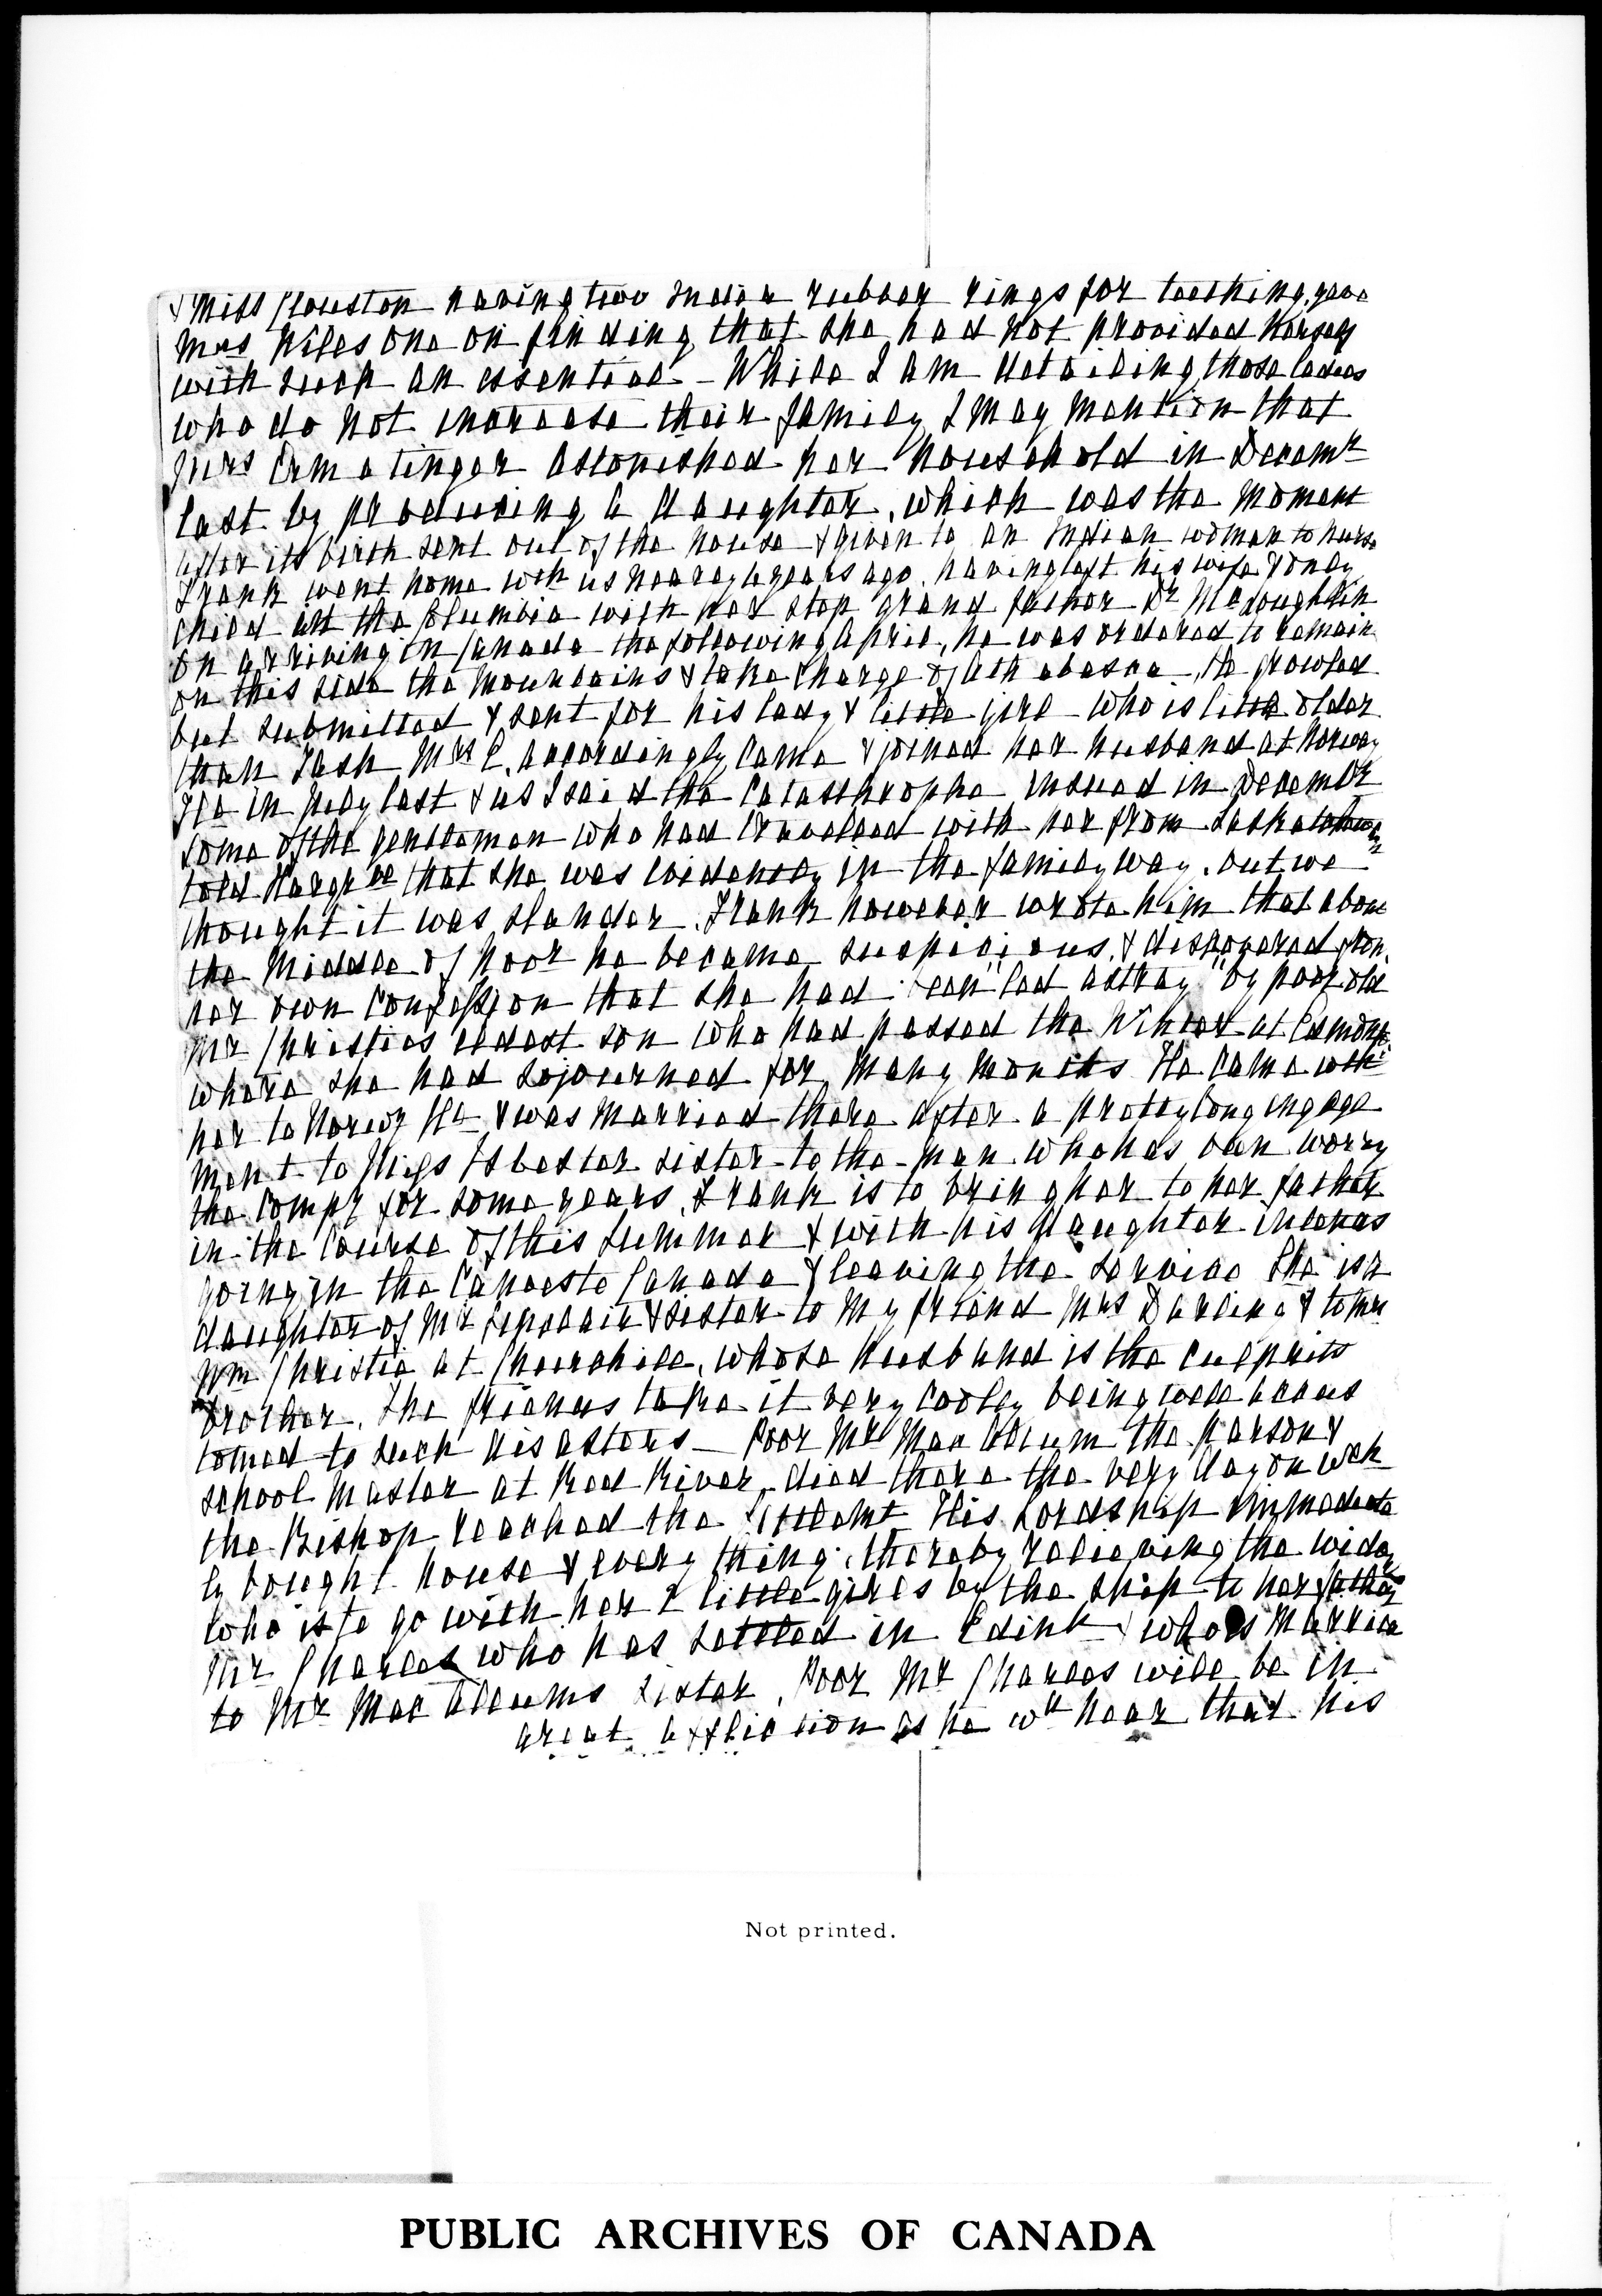 & Miss Clouston having two India rubber rings for teething, gave
Mrs Niles one on finding that she had not provided herself
with such an essential - While I am detailing those ladies
who do not increase their family I may mention that
Mrs Ermatinger astonished her household in Decemr
last by producing a daughter, which was the moment
after its birth sent out of the house & given to an Indian woman to nurse
Frank went home wth us nearly 4 years ago, having left his wife & only
child at the Columbia with her step grand father Dr McLoughlin
on arriving in Canada the following April, he was ordered to remain
on this side the Mountains & take charge of Athabasca - He growled
but submitted & sent for his lady & little girl - who is little older
than Tash Mrs E. accordingly came & joined her husband at Norway
Ho in July last & as I said the catasthrophe insued in Decembr
some of the gentlemen who had travelled with her from Saskatchewan
told Hargve that she was evidently in the family way, but we
thought it was slander. Frank however wrote him that about
the Middle of Novr he became suspicious, & discovered from
her own confession that she had been "led astray" by poor old
Mr Christies eldest son who had passed the Winter at Edmonton
where she had sojourned for many months He came with
her to Norwy Ho & was married there after a pretty long engage
ment to Miss Isbester sister to the man who has been worry
the Compy for some years, Frank is to bring her to her father
in the course of this summer & with his daughter intends
going in the Canoes to Canada & leaving the service She is a
daughter of Mr Sinclair & sister to my friend Mrs Darling & to Mrs
Wm Christie at Churchill, whose husband is the culprits
brother. The friends take it very cooly being well accus
tomed to such disasters - Poor Mr MacCallum the parson &
school Master at Red River died there the very day on wch
the Bishop reached the Settlemt His Lordship immediate
ly bought house & every thing, thereby relieving the widow
who is to go with her 2 little girls by the ship to her father
Mr Charles who has settled in Edinh & who is married
to Mr MacCallums sister, Poor Mr Charles will be in
great affliction as he wll hear that his
Not printed.
PUBLIC ARCHIVES OF CANADA